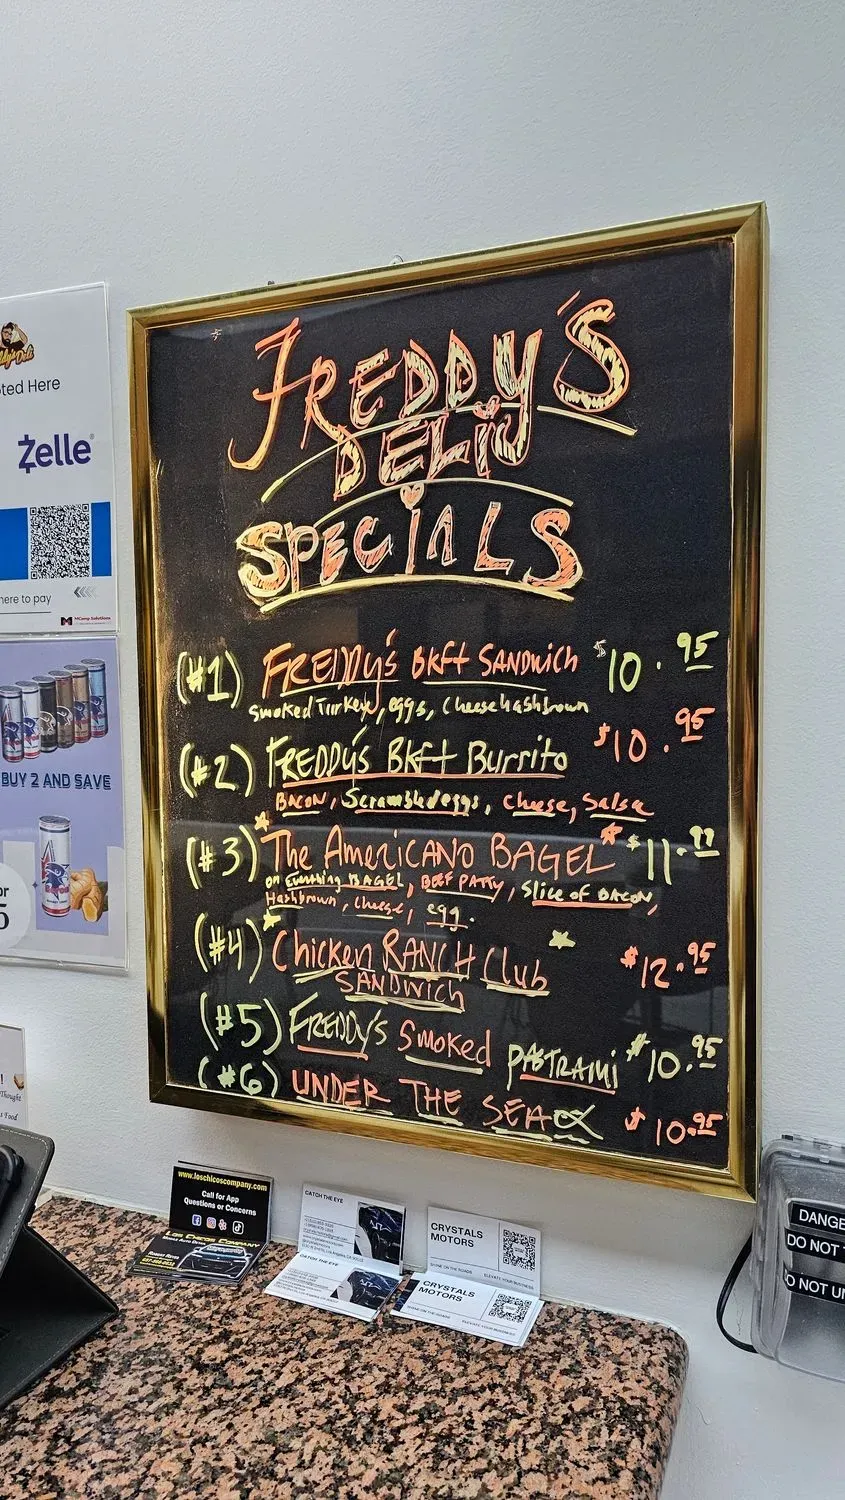 FREDDY'S
DELI
SPECIALS
(#1) FREDDY'S BKFT SANDWICH $10.95
Smoked Turkey, eggs, Cheese hashbrown
(#2) FREDDY'S BKFT Burrito $10.95
BACON, Scrambled eggs, Cheese, Salsa
(#3) The AmericANO BAGEL $11.99
on Everything BAGEL, BEEF PATTY, Slice of BACON,
Hashbrown, cheese, egg.
(#4) Chicken RANCH Club $12.95
SANDWICH
(#5) FREDDY'S Smoked PASTRAMI $10.95
(#6) UNDER THE SEA $10.95
Deli
oted Here
Zelle
here to pay
MComp Solutions
BUY 2 AND SAVE
or
Thought
Food
www.loschicoscompany.com
Call for App
Questions or Concerns
LOS CHICOS COMPANY
CATCH THE EYE
CATCH THE EYE
CRYSTALS
MOTORS
SHINE ON THE ROADS
ELEVATE YOUR BUSINESS
CRYSTALS
MOTORS
SHINE ON THE ROADS
ELEVATE YOUR BUSINESS
DANGE
DO NOT